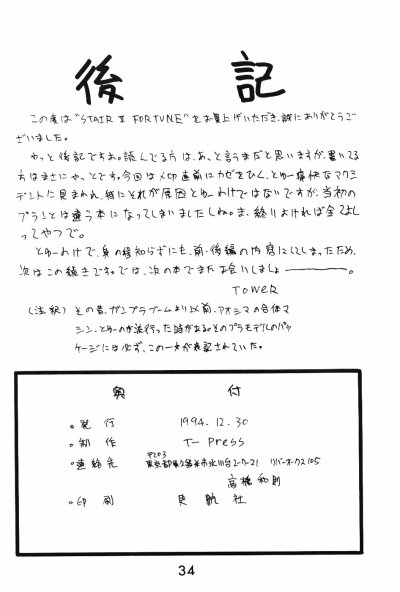 後記
この度は"STAIR Ⅱ FORTUNE"をお買上げいただき、誠にありがとうご
ざいました。
やっと後記ですよ。読んでる方は、あっと言うまだと思いますが、書いてる
方はまさにやっとです。今回は〆切直前にカゼをひく、とゆー痛快なアクシ
デントに見まわれ、特にそれが原因とゆーわけではないですが、当初の
プランとは違う本になってしまいましたしね。ま、終りよければ全てよし
ってやつで。
とゆーわけで、身の程知らずにも、前・後編の内容にしてしまったため、
次はこの続きです。では、次の本でまたお会いしましょ――――。
TOWER
(注釈) その昔、ガンプラブームより以前、アオシマの合体マ
シン、とゆーのが流行った時がある。そのプラモデルのパッ
ケージには必ず、この一文が表記されていた。
奥付
。発行 1994.12.30
。制作 T- Press
。連絡先 〒203
東京都東久留米市氷川台2-7-21 リバーオークス105
高橋和則
。印刷 社
34